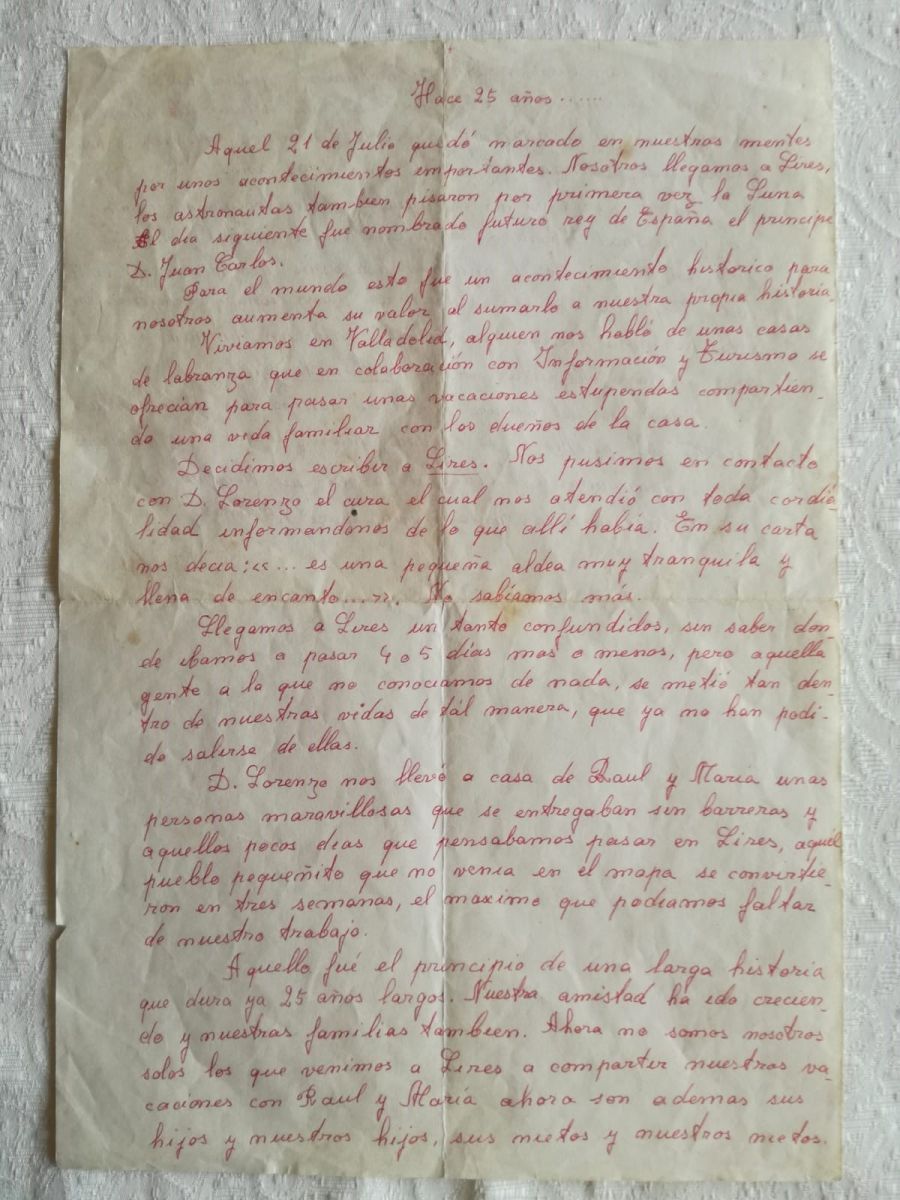 Hace 25 años......
Aquel 21 de Julio quedó marcado en nuestras mentes
por unos acontecimientos importantes. Nosotros llegamos a Lires,
los astronautas tambien pisaron por primera vez la Luna
El dia siguiente fue nombrado futuro rey de España el principe
D. Juan Carlos.
Para el mundo esto fue un acontecimiento historico para
nosotros aumenta su valor al sumarlo a nuestra propia historia.
Viviamos en Valladolid, alguien nos habló de unas casas
de labranza que en colaboración con Información y Turismo se
ofrecian para pasar unas vacaciones estupendas compartien-
do una vida familiar con los dueños de la casa.
Decidimos escribir a Lires. Nos pusimos en contacto
con D. Lorenzo el cura el cual nos atendió con toda cordia-
lidad informandonos de lo que allí habia. En su carta
nos decia: <<... es una pequeña aldea muy tranquila y
llena de encanto...>>. No sabiamos más.
Llegamos a Lires un tanto confundidos, sin saber don-
de ibamos a pasar 4 o 5 dias mas o menos, pero aquella
gente a la que no conociamos de nada, se metió tan den-
tro de nuestras vidas de tál manera, que ya no han podi-
do salirse de ellas.
D. Lorenzo nos llevó a casa de Raul y Maria unas
personas maravillosas que se entregaban sin barreras y
aquellos pocos dias que pensabamos pasar en Lires, aquel
pueblo pequeñito que no venia en el mapa se convirtie-
ron en tres semanas, el maximo que podiamos faltar
de nuestro trabajo.
Aquello fué el principio de una larga historia
que dura ya 25 años largos. Nuestra amistad ha ido crecien-
do y nuestras familias tambien. Ahora no somos nosotros
solos los que venimos a Lires a compartir nuestras va-
caciones con Raul y María ahora son ademas sus
hijos y nuestros hijos, sus nietos y nuestros nietos.